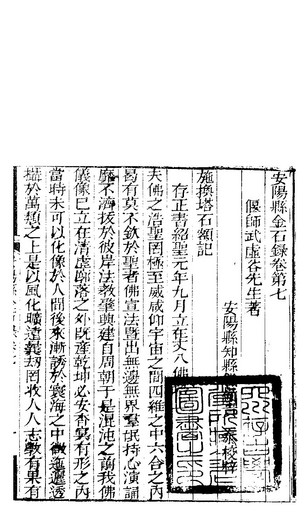 安陽縣金石錄卷第七
偃師武虛谷先生著
安陽縣知縣
校梓
施換塔石額記
存正書紹聖元年九月立在天八佛
夫佛之浩聖罔極至感咸仰宇宙之間四維之中六合之內
曷有莫不欽於聖者佛宣法暨出無邊無界羣氓持心演誦
靡不濟拔於彼岸法教肇興建自周朝于是混沌之前我佛
儀像已立在清虛廓落之外既産乾坤必安香莫有形之內
當時未可以化像於人間後來漸誘於寰海之中微迤邐透
攝於萬類之上是以風化曠遠義刼罔收人人志教有果有